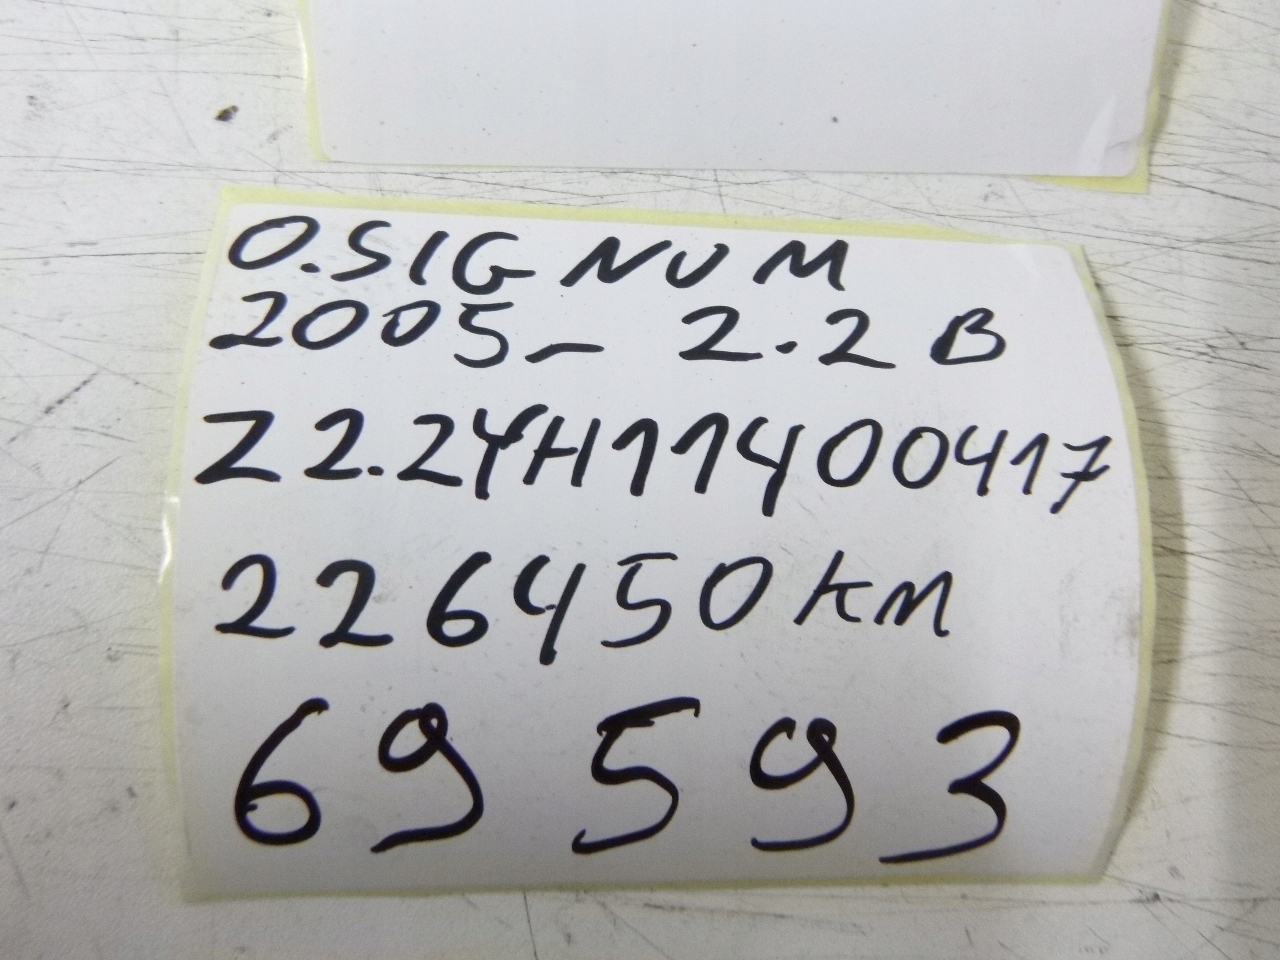 O.SIGNUM
2005- 2.2 B
Z2.2YH11400417
226450 KM
69593